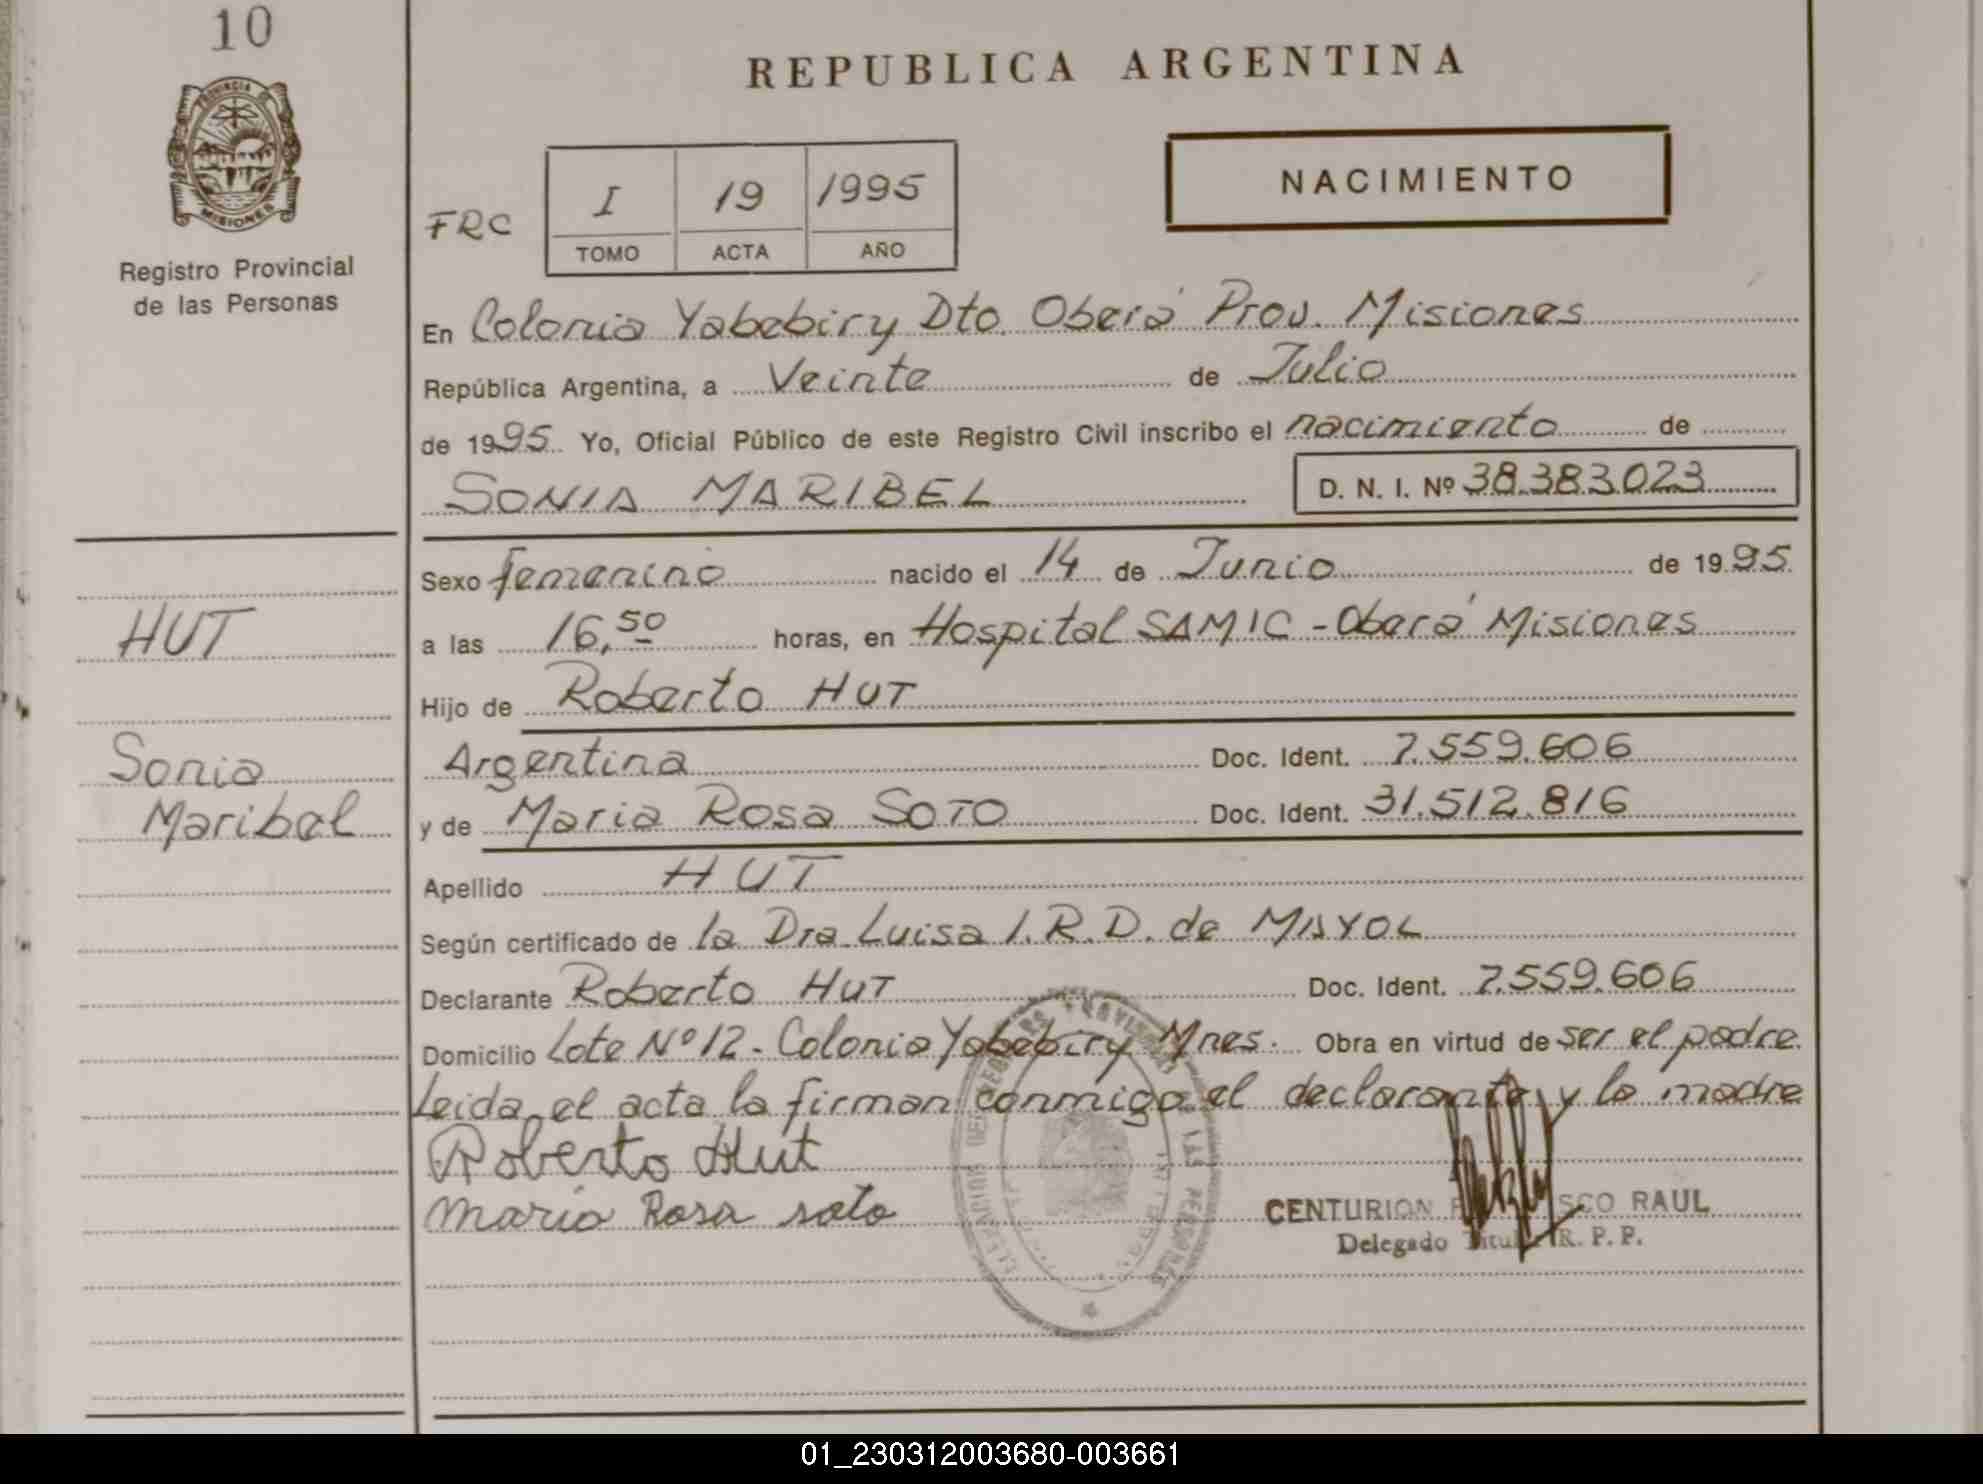 10
PROVINCIA DE
MISIONES
Registro Provincial
de las Personas
HUT
Sonia
Maribel
REPUBLICA ARGENTINA
NACIMIENTO
FRC
I 19 1995
TOMO ACTA AÑO
En Colonia Yabebiry Dto. Oberá Prov. Misiones
República Argentina, a Veinte de Julio
de 1995. Yo, Oficial Público de este Registro Civil inscribo el nacimiento de
SONIA MARIBEL D. N. I. Nº 38.383.023
Sexo femenino nacido el 14 de Junio de 1995.
a las 16,50 horas, en Hospital SAMIC - Oberá Misiones
Hijo de Roberto HUT
Argentina Doc. Ident. 7.559.606
y de Maria Rosa SOTO Doc. Ident. 31.512.816
Apellido HUT
Según certificado de la Dra. Luisa I. R. D. de MAYOL
Declarante Roberto HUT Doc. Ident. 7.559.606
Domicilio Lote Nº 12 - Colonia Yabebiry Mnes. Obra en virtud de ser el padre.
Leida el acta la firman conmigo el declarante y la madre
Roberto Hut
maria Rosa soto
CENTURION RAUL
Delegado Titular R. P. P.
01_230312003680-003661